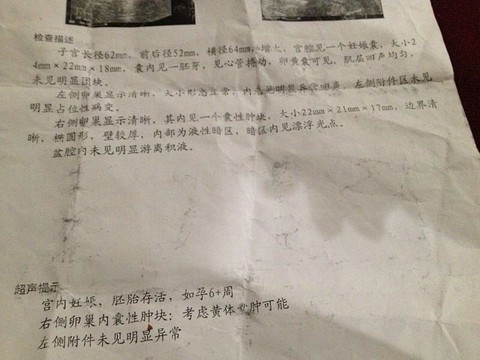 检查描述
子宫长径62mm，前后径52mm，横径64mm，增大，宫腔见一个妊娠囊，大小2
4mm×22mm×18mm，囊内见一胚芽，见心管搏动，卵黄囊可见，肌层回声均匀，
未见明显团块。
左侧卵巢显示清晰，大小形态正常，内未见明显异常回声，左侧附件区未见
明显占位性病变。
右侧卵巢显示清晰，其内见一个囊性肿块，大小22mm×21mm×17mm，边界清
晰，椭圆形，壁较厚，内部为液性暗区，暗区内见漂浮光点。
盆腔内未见明显游离积液。
超声提示
宫内妊娠，胚胎存活，如孕6+周
右侧卵巢内囊性肿块：考虑黄体囊肿可能
左侧附件未见明显异常